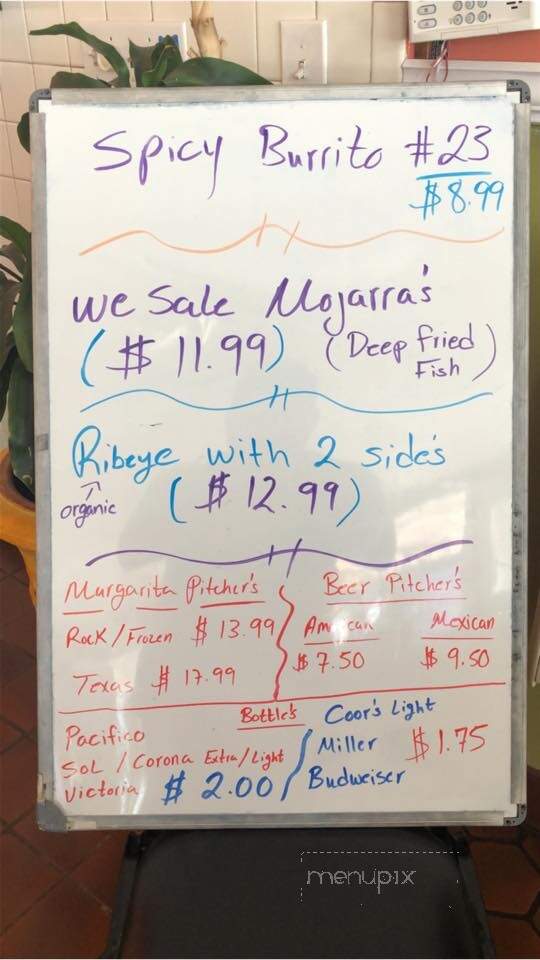 Spicy Burrito #23
$8.99
We Sale Mojarra's
($11.99) (Deep Fried
Fish)
Ribeye with 2 side's
organic ($12.99)
Margarita Pitcher's
Rock/Frozen $13.99
Texas $17.99
Beer Pitcher's
American Mexican
$7.50 $9.50
Bottle's
Pacifico
Sol / Corona Extra/Light
Victoria $2.00
Coor's Light
Miller $1.75
Budweiser
menupix